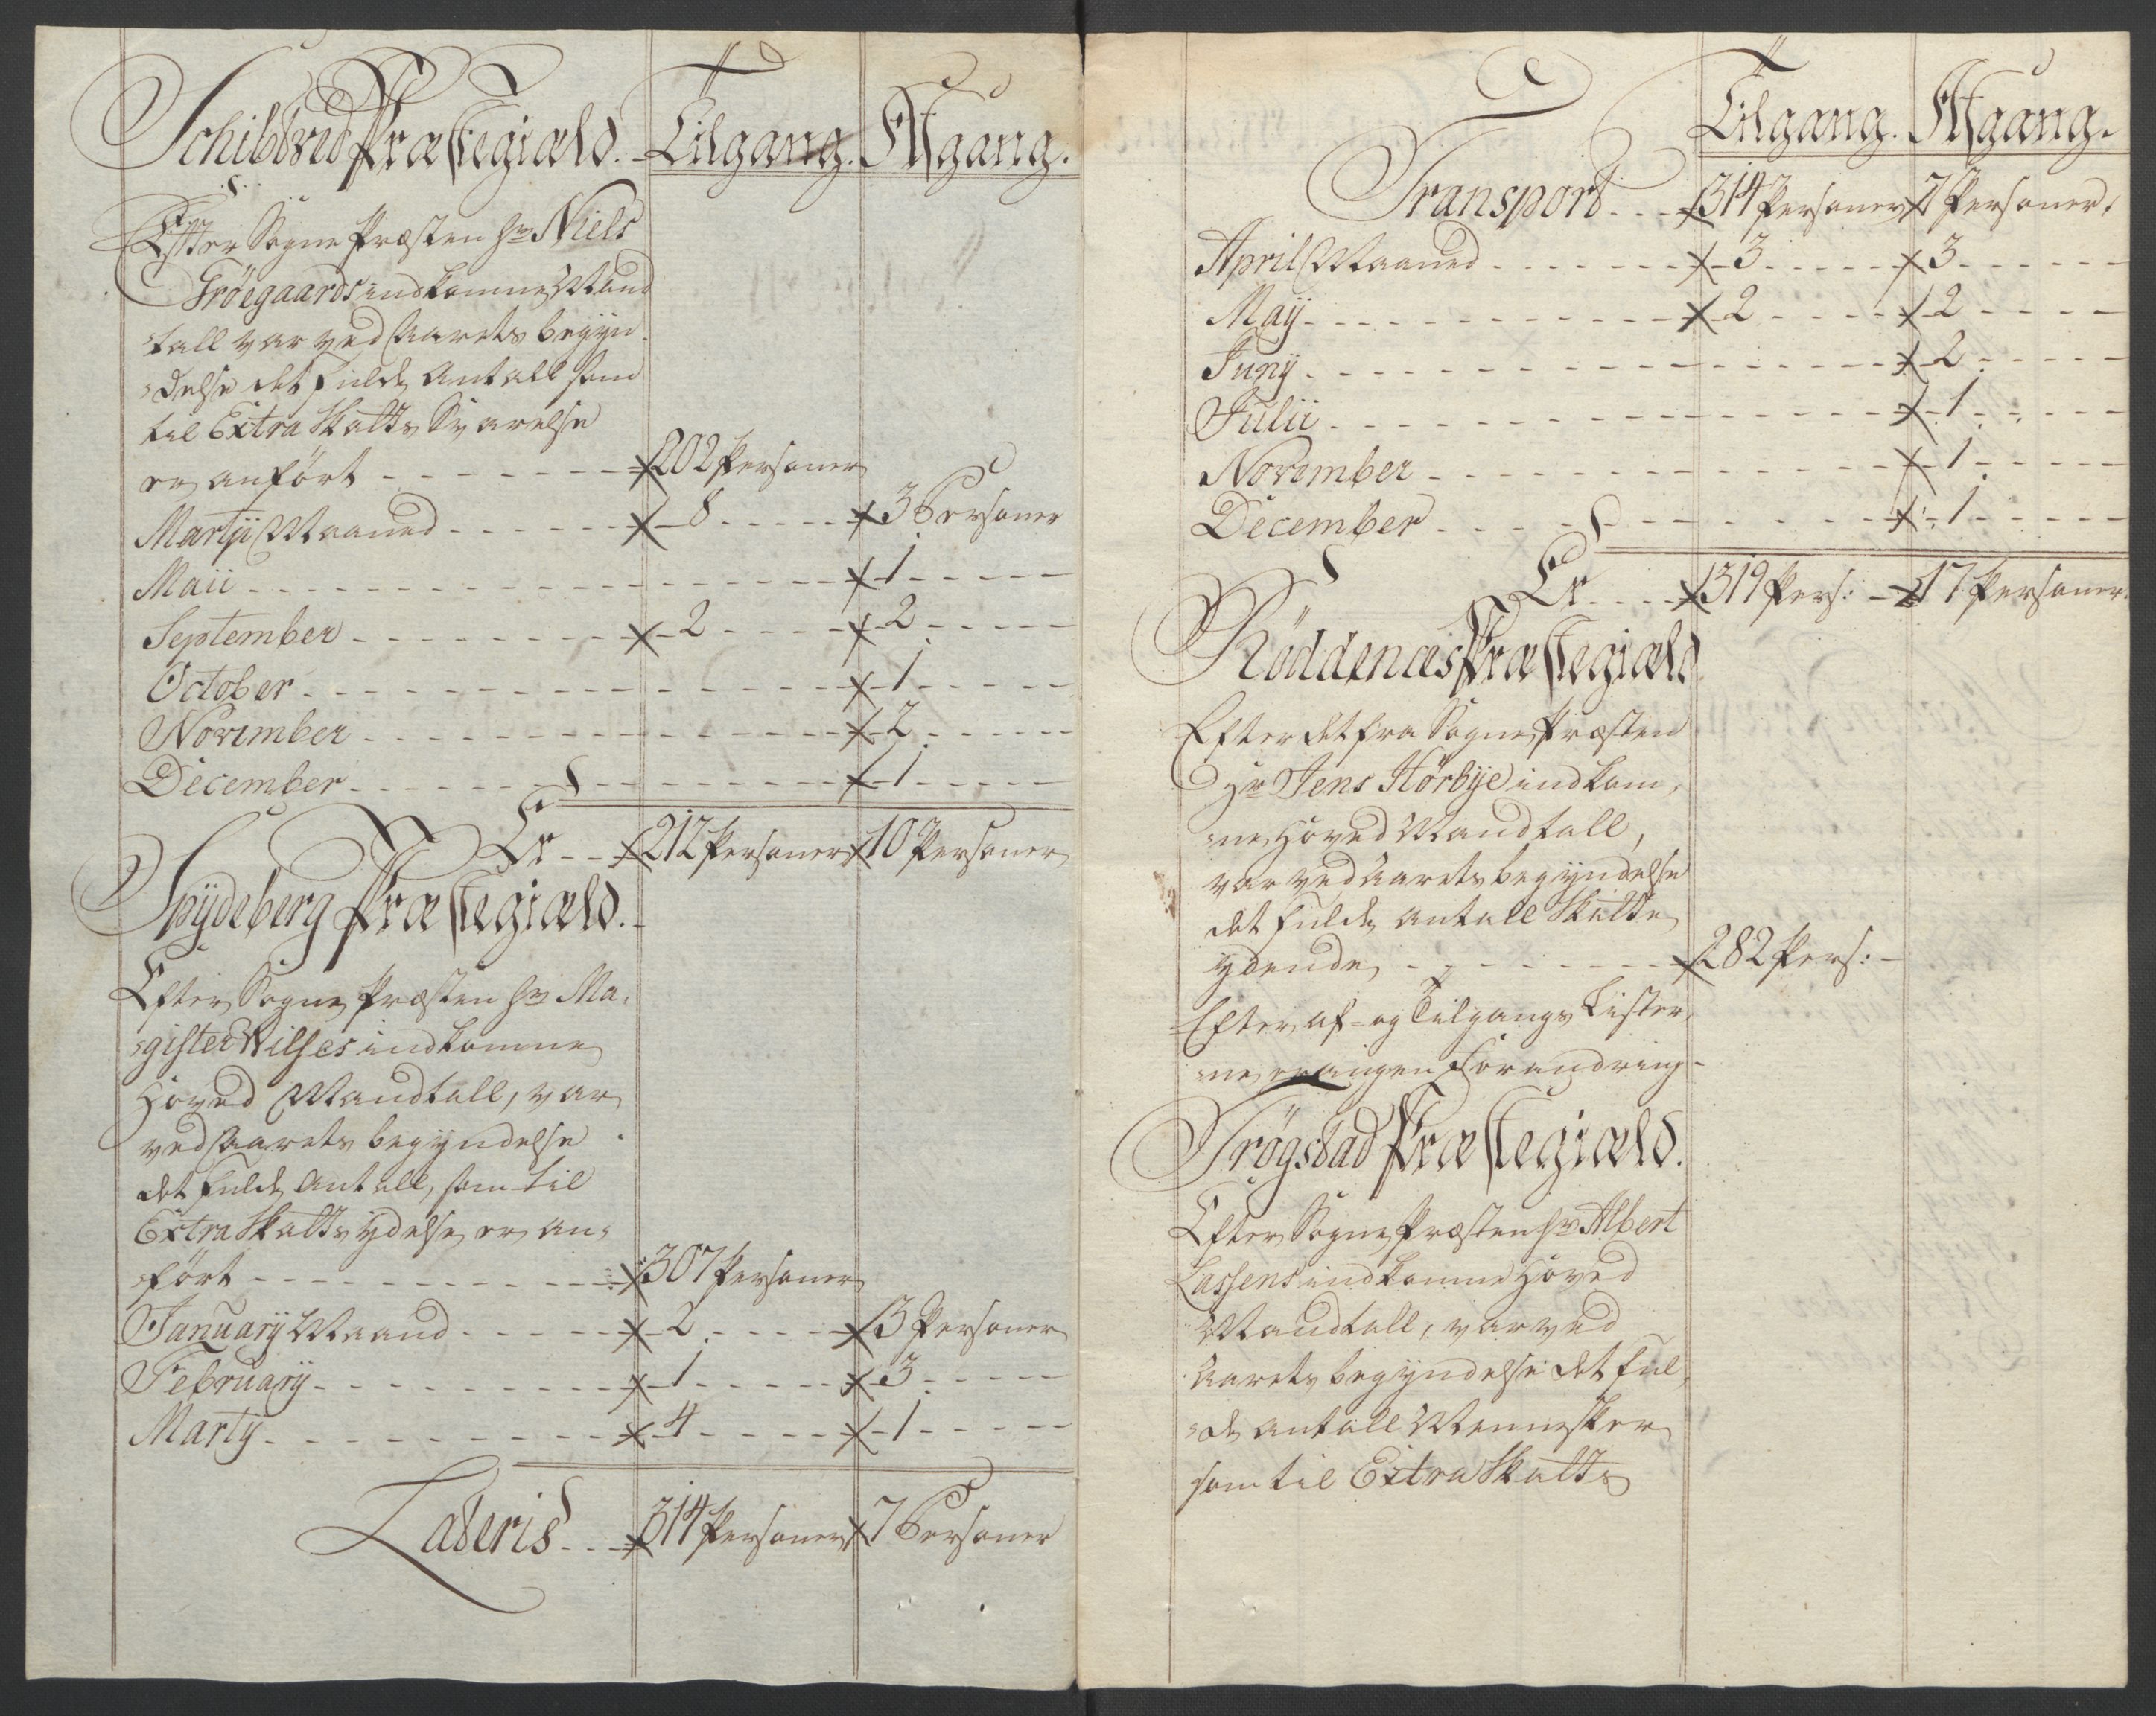 Schibtved Præstegiæld. Tilgang. Afgang.
Efter Sogne Præsten Hr Niels
Tröegaards indkomne Mand
tall var ved Aarets begyn
delse det fulde Antall som
til Extra Skatts Svarelse
er anført - - - 202 Personer
Martii Maaned - - - 8 - - - 3 Personer
Maii - - - 1 - - -
September - - - 2 - - - 2 - - -
October - - - 1 - - -
November - - - 2 - - -
December - - - 1 - - -
Er - - 212 Personer 10 Personer
Spÿdeberg Præstegiæld.
Efter Sogne Præsten Hr Ma-
gister Wilses indkomne
Hoved Mandtall, var
ved Aarets begÿndelse
det fulde Antall, som til
Extra Skatts ÿdelse er an-
ført - - - 307 Personer
Januarÿ Maand - - - 2 - - - 3 Personer
Februarÿ - - - 1 - - - 3 - - -
Martÿ - - - 4 - - - 1 - - -
Lateris - - 314 Personer 7 Personer
Tilgang. Afgang.
Transport - - - 314 Personer 7 Personer
April Maaned - - - 3 - - - 3 - - -
Maÿ - - - 2 - - - 2 - - -
Junÿ - - - 2 - - -
Julii - - - 1 - - -
November - - - 1 - - -
December - - - 1 - - -
Er - - - 319 Pers: - 17 Personer
Röddenæs Præstegiæld
Efter det fra Sogne Præsten
Hr Jens Hörbÿe indkom-
ne Hoved Mandtall,
var ved Aarets begÿndelse
det fulde antall Skatte
ÿdende - - - 282 Pers: -
Efter af- og Tilgangs Lister-
ne er ingen Forandring -
Trögstad Præstegiæld.
Efter Sogne Præsten Hr Albert
Lassens indkomne Hoved
Mandtall, var ved
Aarets begÿndelse det ful-
de antall Mennesker
som til Extra Skatts